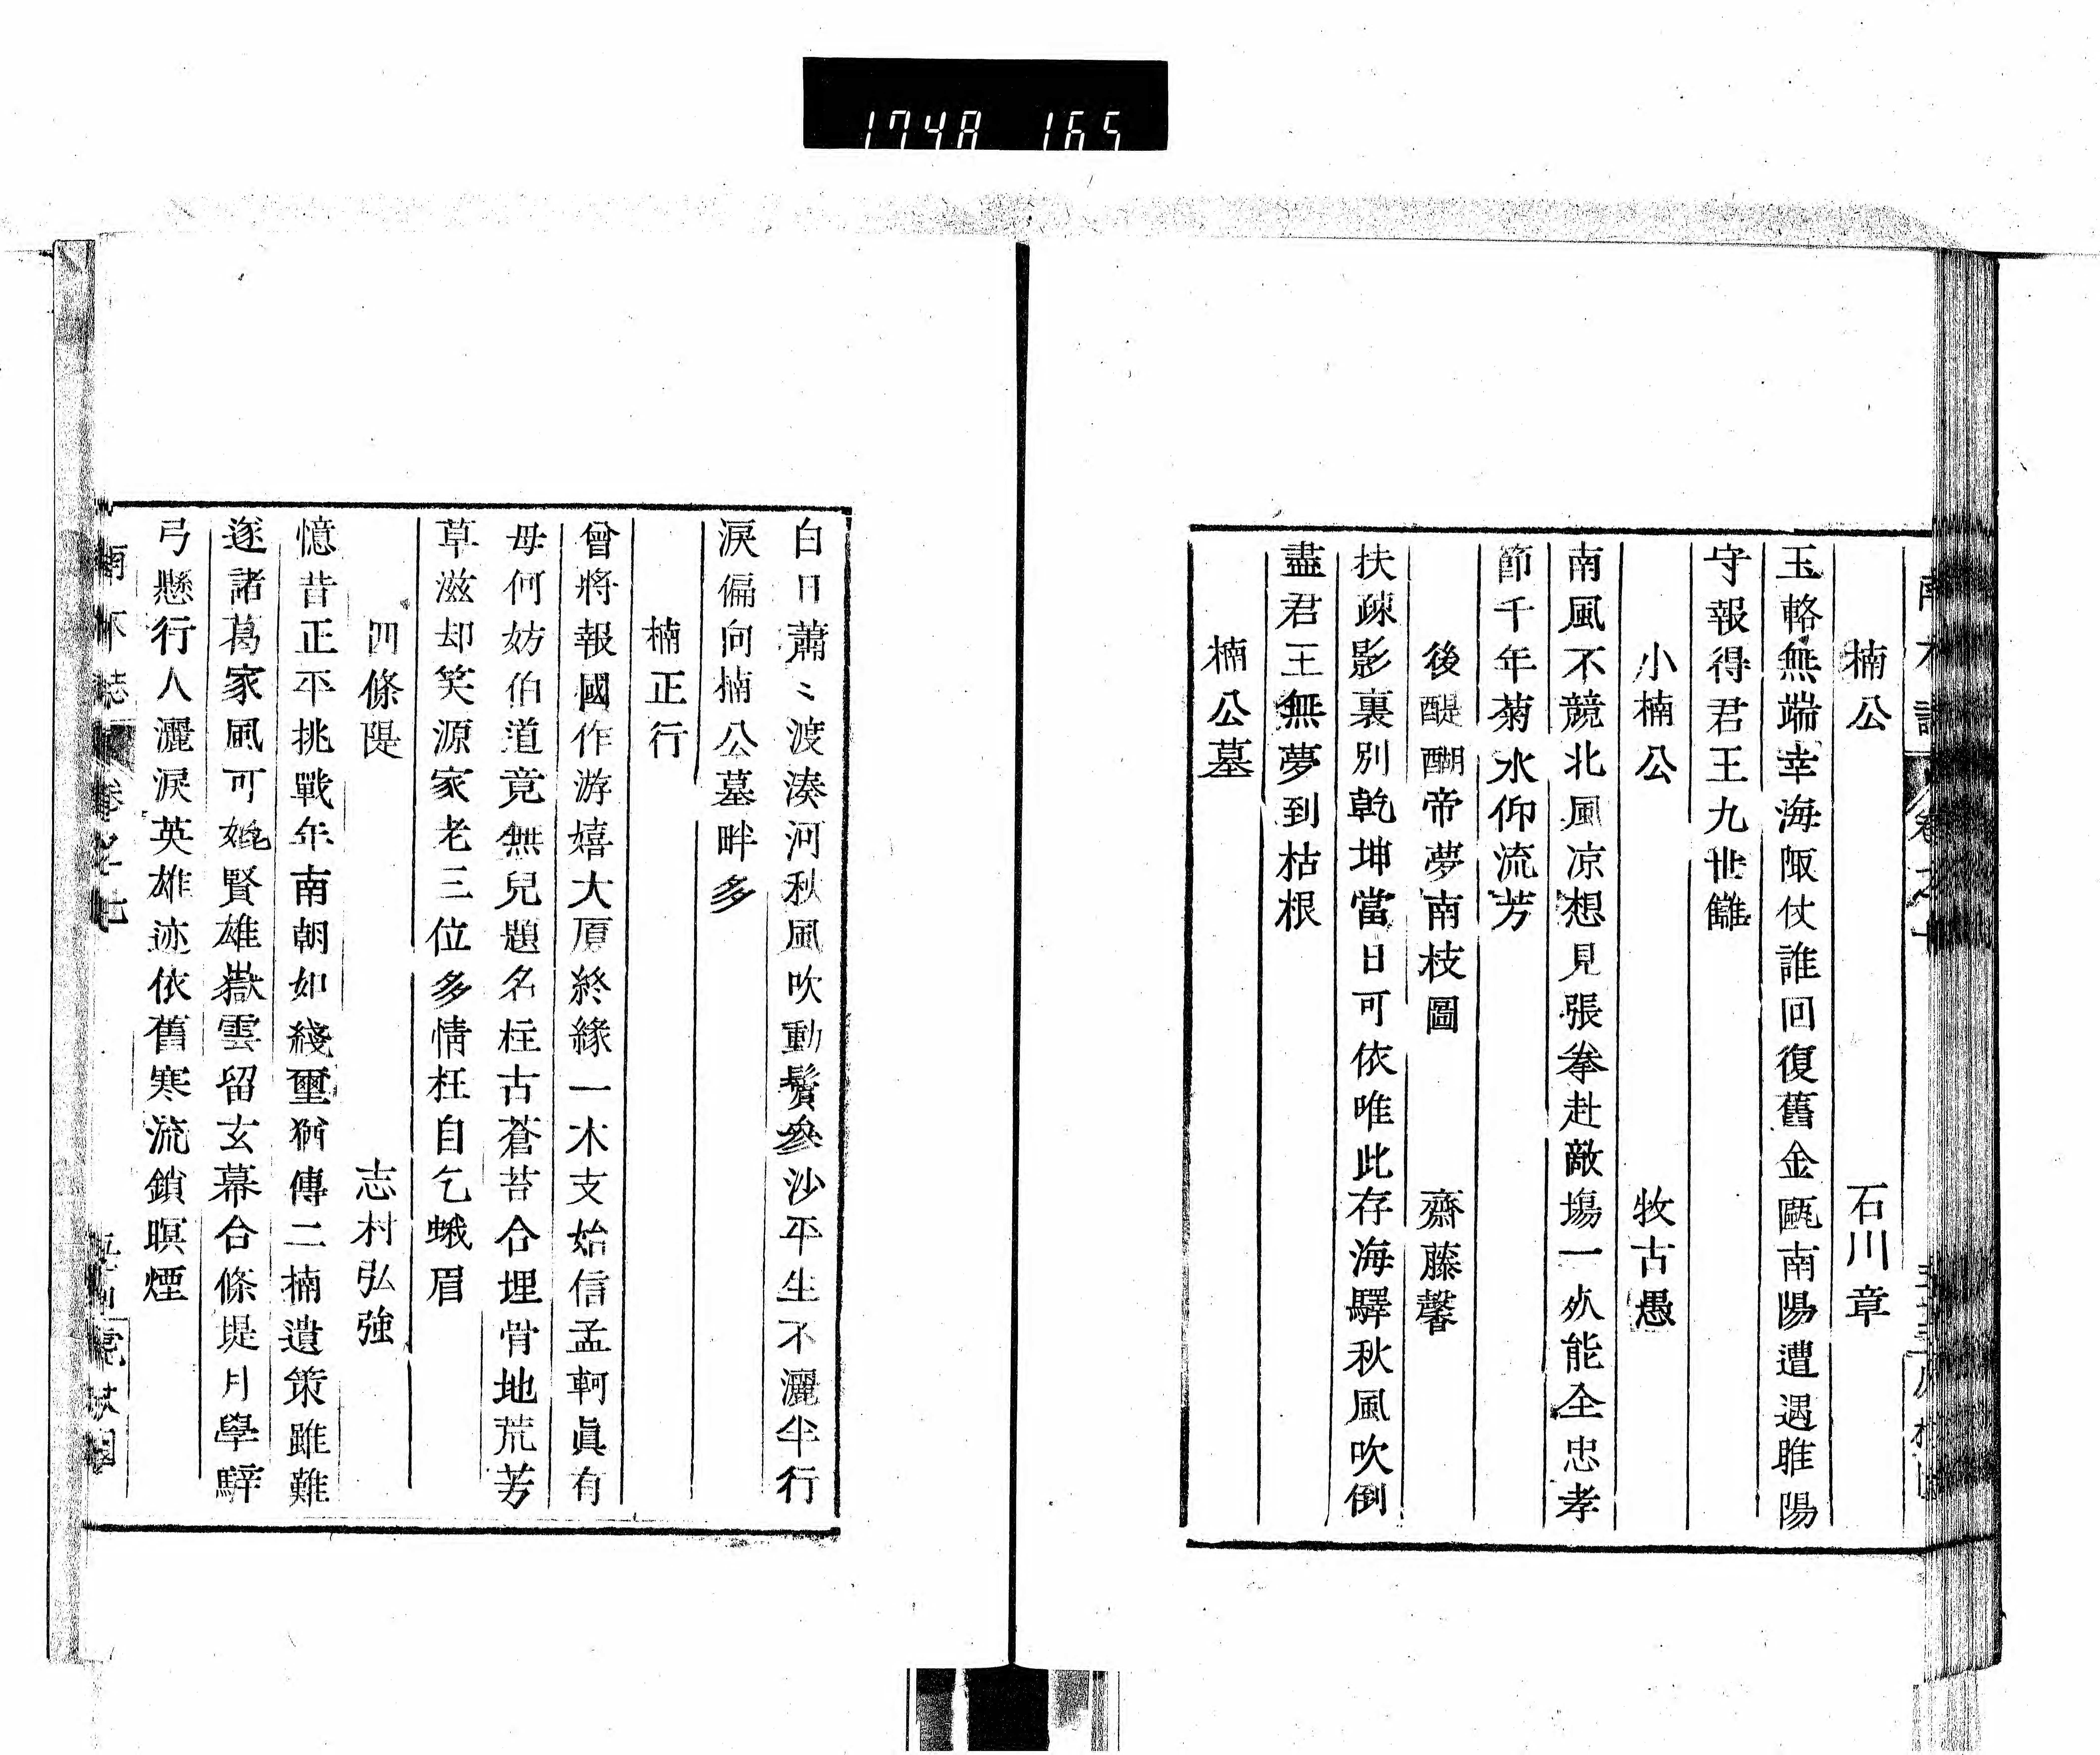 1748 165
楠公 石川章
玉輅無端幸海陬仗誰回復舊金甌南陽遭遇睢陽
守報得君王九世讎
小楠公 牧古愚
南風不競北風凉想見張拳赴敵塲一死能全忠孝
節千年菊水仰流芳
後醍醐帝夢南枝圖 齋藤馨
扶疎影裏別乾坤當日可依唯此存海驛秋風吹倒
盡君王無夢到枯根
楠公墓
白日蕭〻渡湊河秋風吹動鬢參沙平生不灑半行
淚偏向楠公墓畔多
楠正行
曾將報國作游嬉大厦終緣一木支始信孟軻眞有
母何妨伯道竟無兒題名柱古蒼苔合埋骨地荒芳
草滋却笑源家老三位多情枉自乞蛾眉
四條隄 志村弘強
憶昔正平挑戰年南朝如綫璽猶傳二楠遺策雖難
遂諸葛家風可媲賢雄嶽雲留玄幕合條堤月學騂
弓懸行人灑淚英雄迹依舊寒流鎖暝煙
卷之七